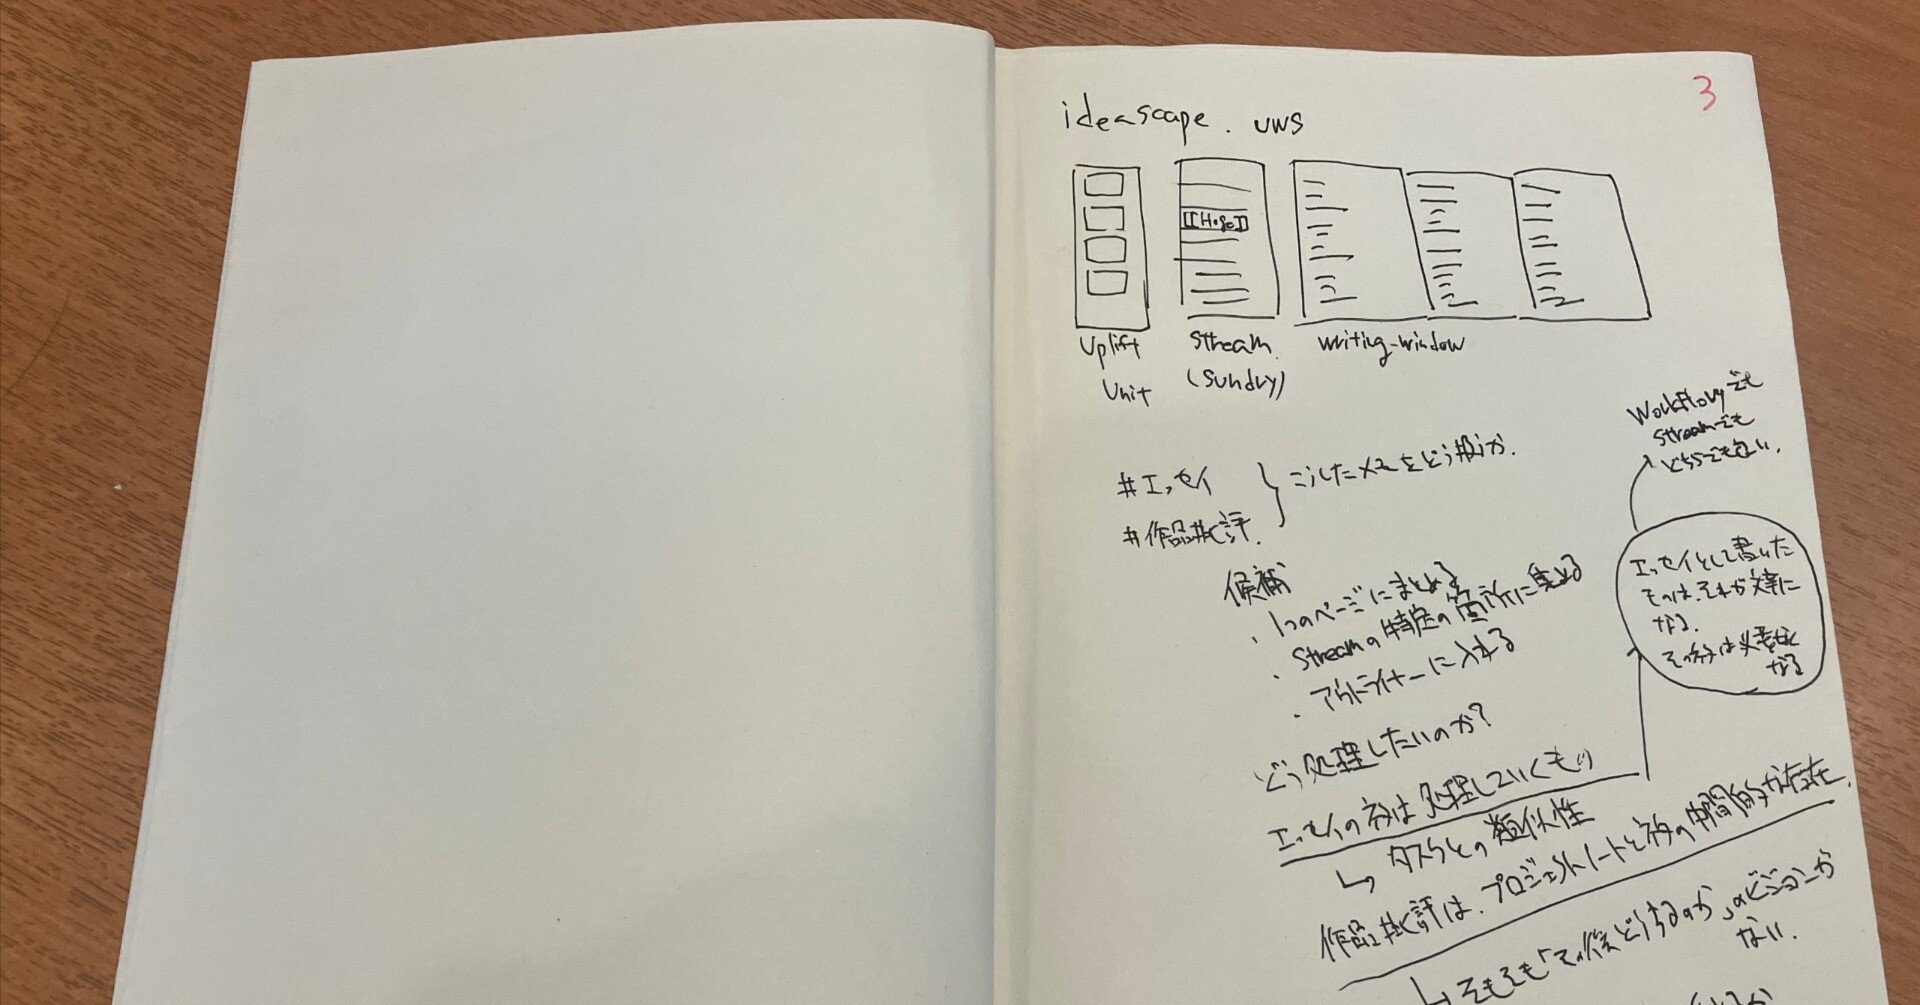 3
ideascape. UWS
[[Hoge]]
Uplift
Unit
Stream
(Sundry)
writing-window
Workflowyでも
Streamでも
どちらでも良い.
#エッセイ
#作品批評.
こうしたメモをどう扱うか.
候補
・1つのページにまとめる
・Streamの特定の箇所に集める
・アウトライナーに入れる
エッセイとして書いた
ものは、それが文章に
なる.
そのネタは必要なく
なる
どう処理したいのか?
エッセイのネタは処理していくもの
↳タスクとの類似性
作品批評は、プロジェクトノートとネタの中間的な存在.
↳そもそも「その後どうするのか」のビジョンが
ない.